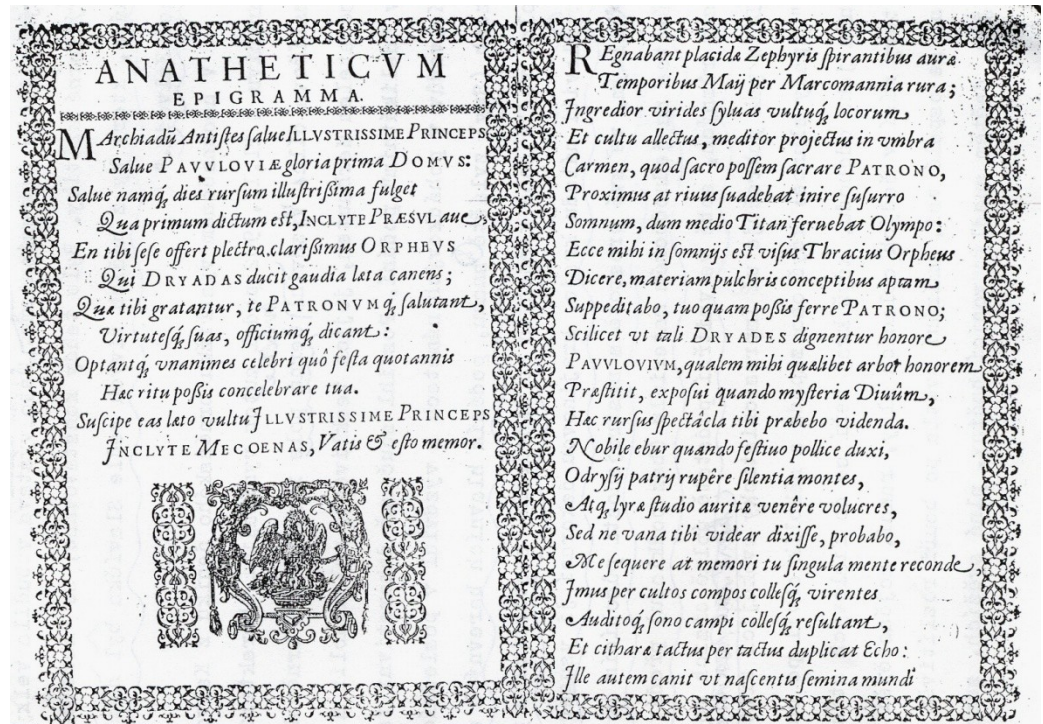 ANATHETICVM
EPIGRAMMA.
MArchiadū Antiſtes ſalue ILLVSTRISSIME PRINCEPS
Salue PAVVLOVIÆ gloria prima DOMVS:
Salue namq́; dies rurſum illuſtriſsima fulget
Qua primum dictum eſt, INCLYTE PRÆSVL aue;
En tibi ſeſe offert plectro clariſsimus ORPHEVS
Qui DRYADAS ducit gaudia læta canens;
Quæ tibi gratantur, te PATRONVMq́; ſalutant,
Virtuteſq́; ſuas, officiumq́; dicant:
Optantq́; vnanimes celebri quô feſta quotannis
Hac ritu poſsis concelebrare tua.
Suſcipe eas læto vultu JLLVSTRISSIME PRINCEPS
JNCLYTE MECOENAS, Vatis & eſto memor.
REgnabant placidæ Zephyris ſpirantibus auræ
Temporibus Maÿ per Marcomannia rura;
Jngredior virides ſyluas vultuq́; locorum
Et cultu allectus, meditor projectus in vmbra
Carmen, quod ſacro poſſem ſacrare PATRONO,
Proximus at riuus ſuadebat inire ſuſurro
Somnum, dum medio Titan feruebat Olympo:
Ecce mihi in ſomnijs eſt viſus Thracius Orpheus
Dicere, materiam pulchris conceptibus aptam
Suppeditabo, tuo quam poſſis ferre PATRONO;
Scilicet vt tali DRYADES dignentur honore
PAVVLOVIVM, qualem mihi quælibet arbor honorem
Præſtitit, expoſui quando myſteria Diuûm,
Hæc rurſus ſpectâcla tibi præbebo videnda.
Nobile ebur quando feſtiuo pollice duxi,
Odryſij patrij rupêre ſilentia montes,
Atq́; lyræ ſtudio auritæ venêre volucres,
Sed ne vana tibi videar dixiſſe, probabo,
Me ſequere at memori tu ſingula mente reconde,
Jmus per cultos compos colleſq́; virentes
Auditoq́; ſono campi colleſq́; reſultant,
Et citharæ tactus per tactus duplicat Echo:
Jlle autem canit vt naſcentis ſemina mundi